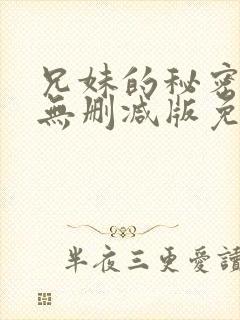 兄妹的秘密
無刪減版免
半夜三更愛讀